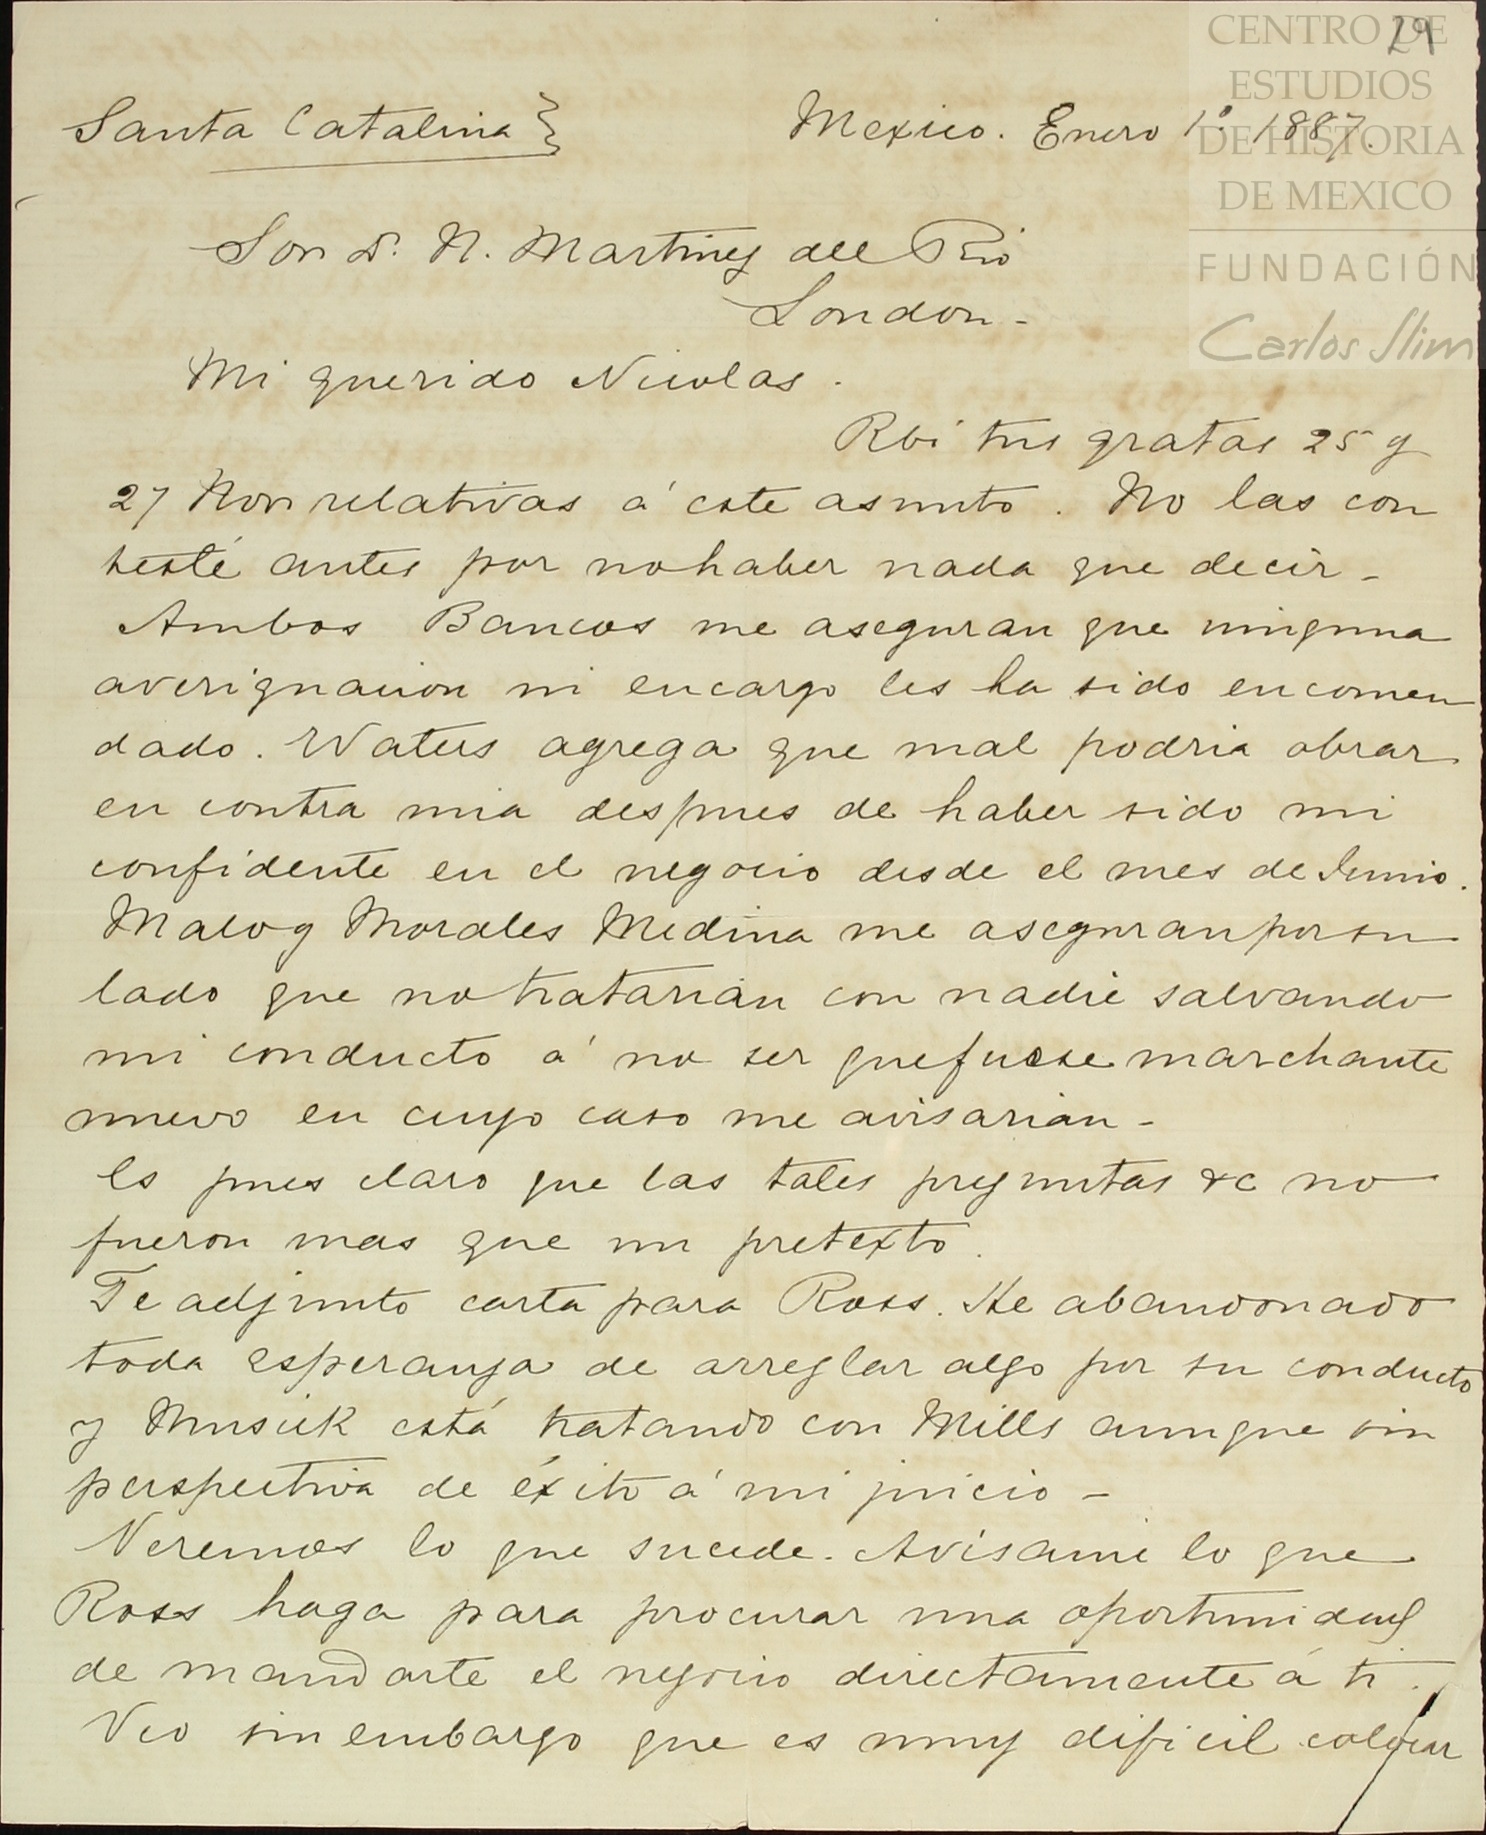 29
CENTRO DE
ESTUDIOS
DE HISTORIA
DE MEXICO
FUNDACIÓN
Carlos Slim
Santa Catalina
Mexico. Enero 1º 1887.
Sor D. N. Martinez del Rio
London -
Mi querido Nicolas.
Rbi tus gratas 25 y
27 Nov relativas á este asunto. No las con
testé antes por no haber nada que decir -
Ambos Bancos me aseguran que ninguna
averiguacion ni encargo les ha sido encomen
dado. Waters agrega que mal podria obrar
en contra mia despues de haber sido mi
confidente en el negocio desde el mes de Junio.
Malo y Morales Medina me aseguran por su
lado que no tratarian con nadie salvando
mi conducto á no ser que fuese marchante
nuevo en cuyo caso me avisarian -
Es pues claro que las tales preguntas &c no
fueron mas que un pretexto.
Te adjunto carta para Ross. He abandonado
toda esperanza de arreglar algo por su conducto
y Musick está tratando con Mills aunque sin
perspectiva de éxito á mi juicio -
Veremos lo que sucede. Avisame lo que
Ross haga para procurar una oportunidad
de mandarte el negocio directamente á ti.
Veo sin embargo que es muy dificil colocar